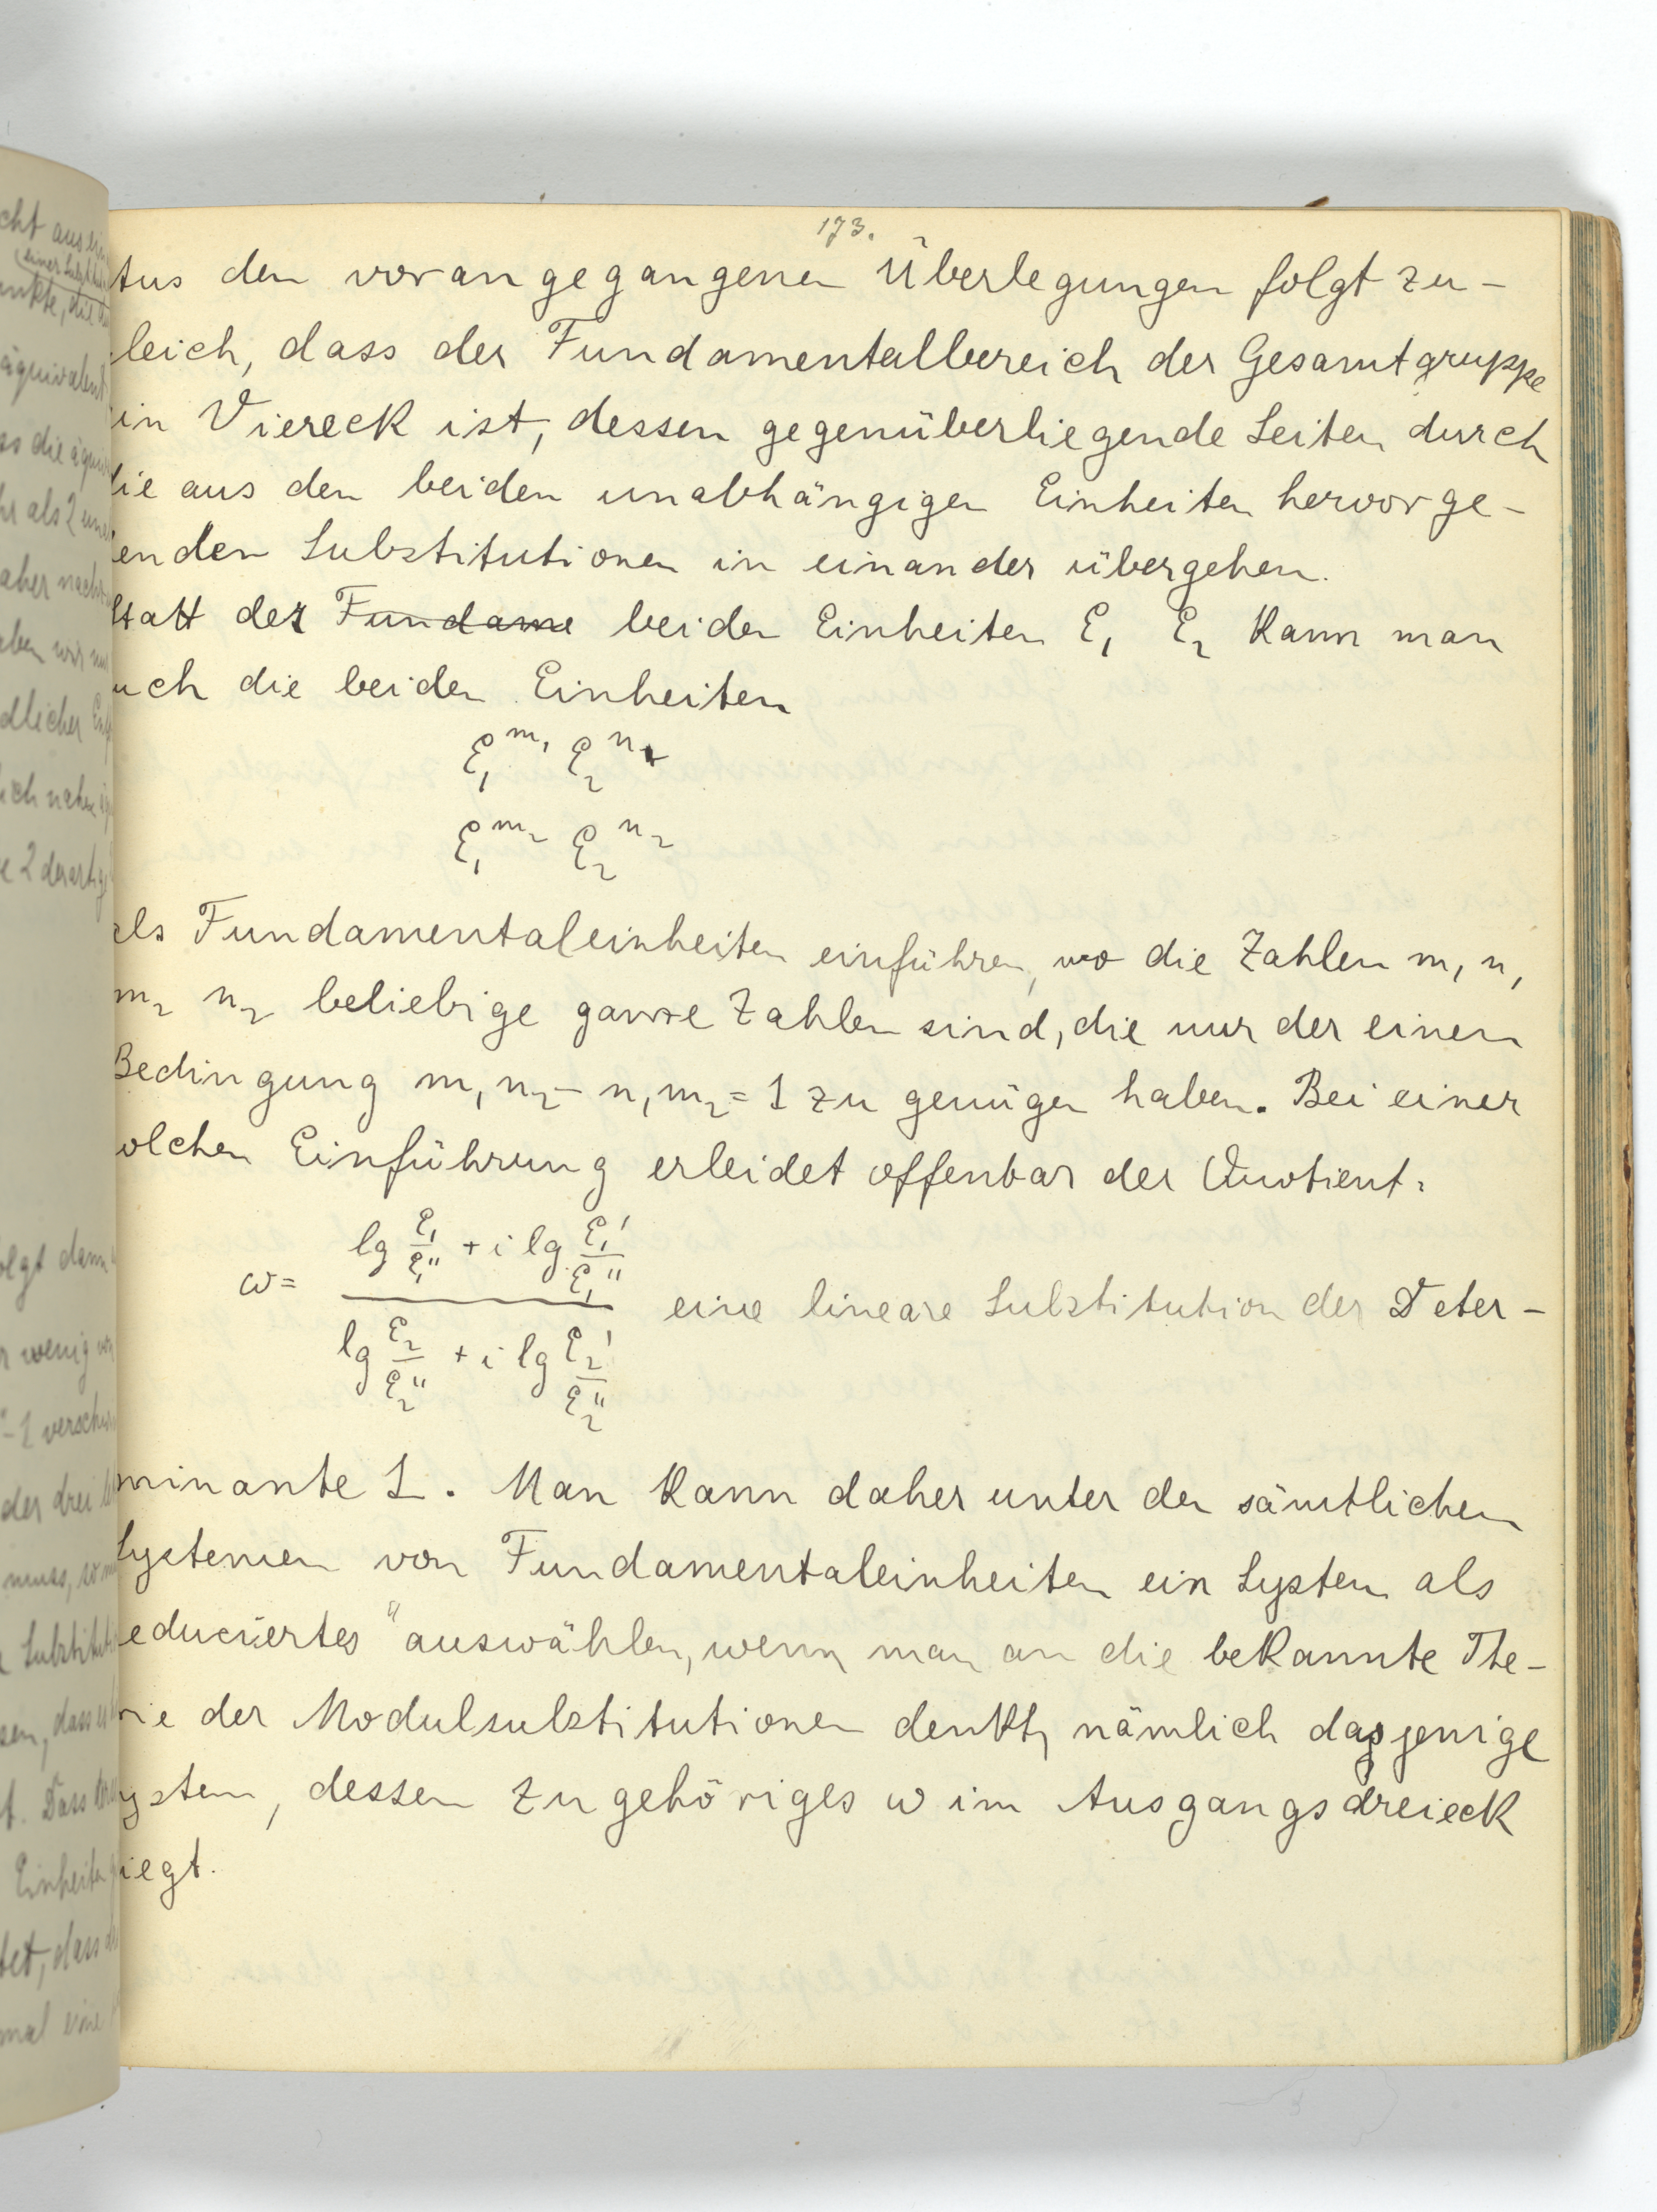 173.
Aus den vorangegangenen Überlegungen folgt zu-
leich, dass der Fundamentalbereich der Gesamtgruppe
in Viereck ist, dessen gegenüberliegende Seiten durch
die aus den beiden unabhängigen Einheiten hervorge-
enden Substitutionen in einander übergehen.
Statt der Fundame beiden Einheiten ε₁ ε₂ kann man
uch die beiden Einheiten
ε₁^m₁ ε₂^n₁
ε₁^m₂ ε₂^n₂
als Fundamentaleinheiten einführen, wo die Zahlen m₁ n₁
m₂ n₂ beliebige ganze Zahlen sind, die nur der einen
Bedingung m₁n₂ - n₁m₂ = 1 zu genügen haben. Bei einer
olchen Einführung erleidet offenbar der Quotient:
ω = (lg ε₁/ε₁'' + i lg ε₁'/ε₁'') / (lg ε₂/ε₂'' + i lg ε₂'/ε₂'') eine lineare Substitution der Deter-
minante 1. Man kann daher unter den sämtlichen
Systemen von Fundamentaleinheiten ein System als
educiertes" auswählen, wenn man an die bekannte The-
rie der Modulsubstitutionen denkt, nämlich dasjenige
ystem, dessen zugehöriges ω im Ausgangsdreieck
iegt.